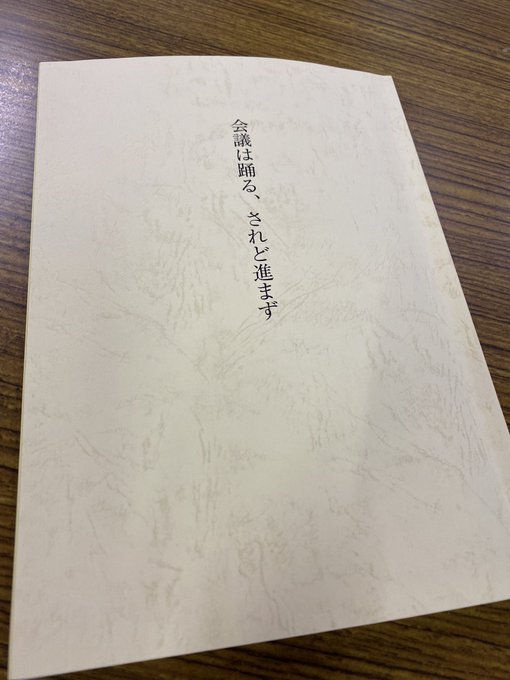 会議は踊る、されど進まず